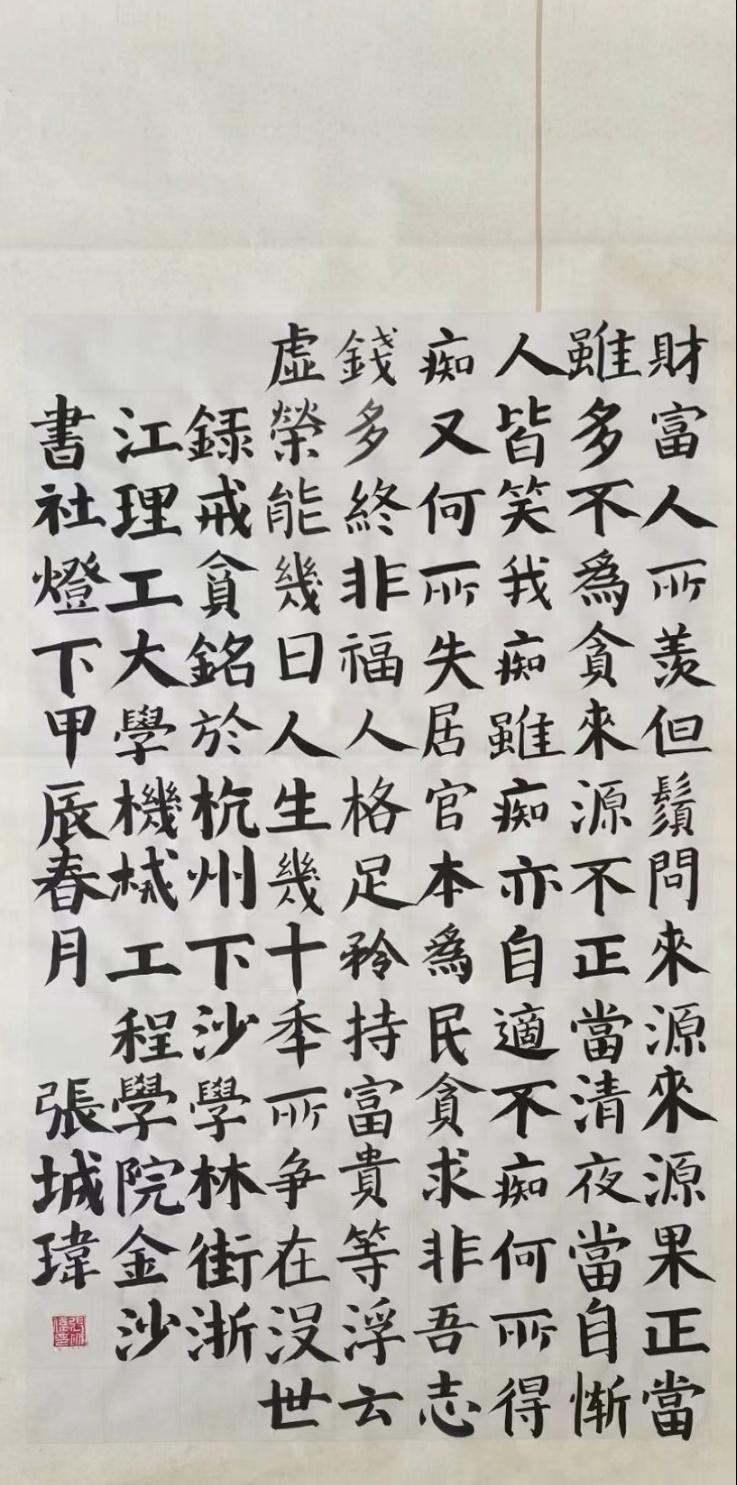 財富人所羨但鬚問來源來源果正當
雖多不為貪來源不正當清夜當自慚
人皆笑我痴雖痴亦自適不痴何所得
痴又何所失居官本為民貪求非吾志
錢多終非福人格足矜持富貴等浮云
虛榮能幾日人生幾十秊所爭在沒世
録戒貪銘於杭州下沙學林街浙
江理工大學機械工程學院金沙
書社燈下甲辰春月 張城瑋